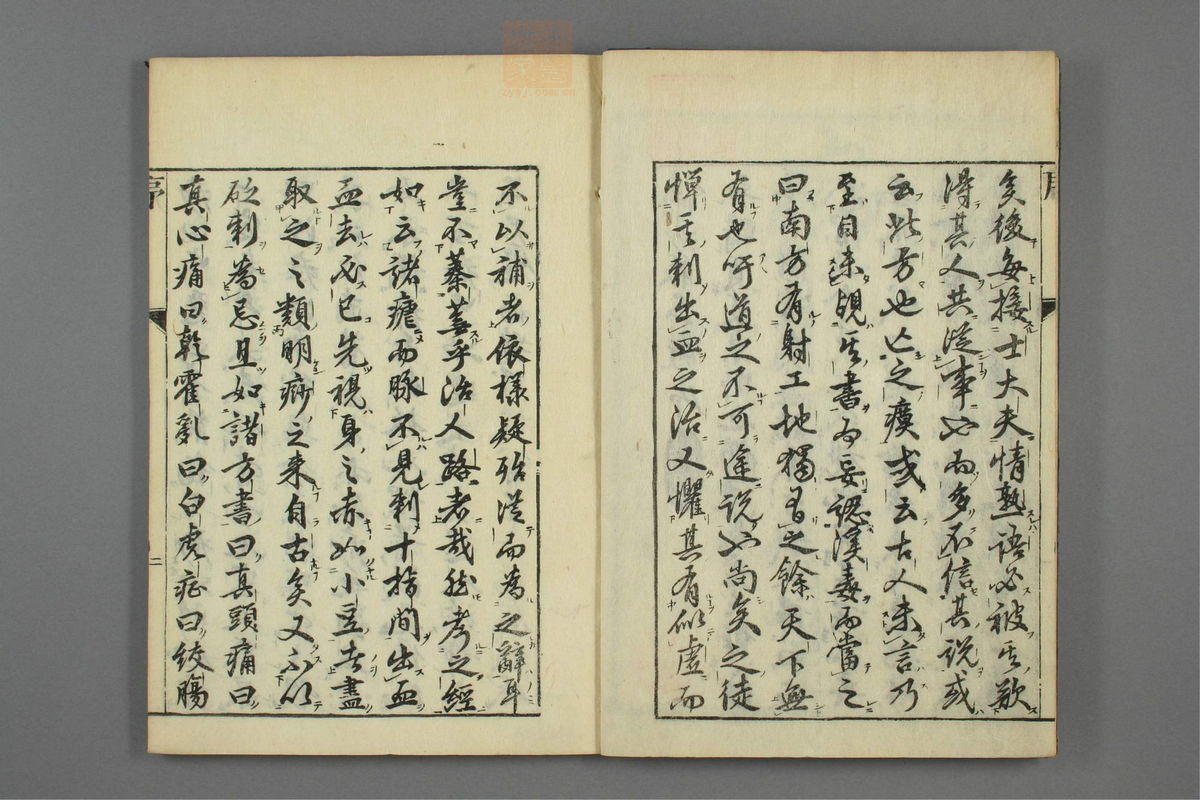 矣後每接士大夫情熟語必被其歎
得其人共從事也而多不信其說或
云此方也亡之瘼或云古人未言乃
至目未覩其書而妄認溪毒而當之
曰南方有射工地獨有之餘天下無
有也吁道之不可途說也尚矣之徒
憚其刺出血之治又懼其有似虛而
不以補者依樣疑殆從而為之辭耳
豈不蓁蕪乎治人路者哉然考之經
如云諸瘧而脉不見刺十指間出血
血去必已先視身之赤如小豆者盡
取之之類明痧之来自古矣又不以
砭刺為忌且如諸方書曰真頭痛曰
真心痛曰乾霍亂曰白虎症曰絞腸
序
二